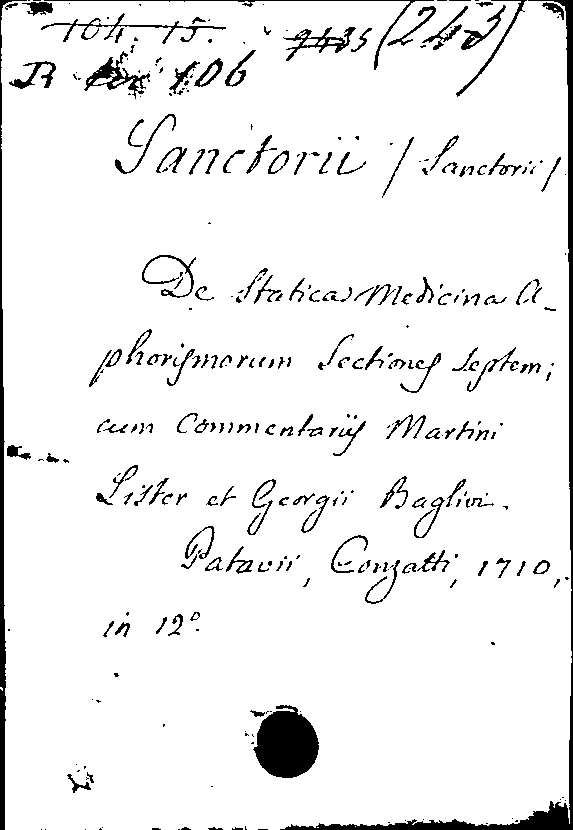 104. 15. (243)
R 106
Sanctorii / Sanctorii /
De Statica Medicina A-
phorismorum Sectiones Septem;
cum Commentariis Martini
Lister et Georgii Baglivi.
Patavii, Conzatti, 1710,
in 12º.